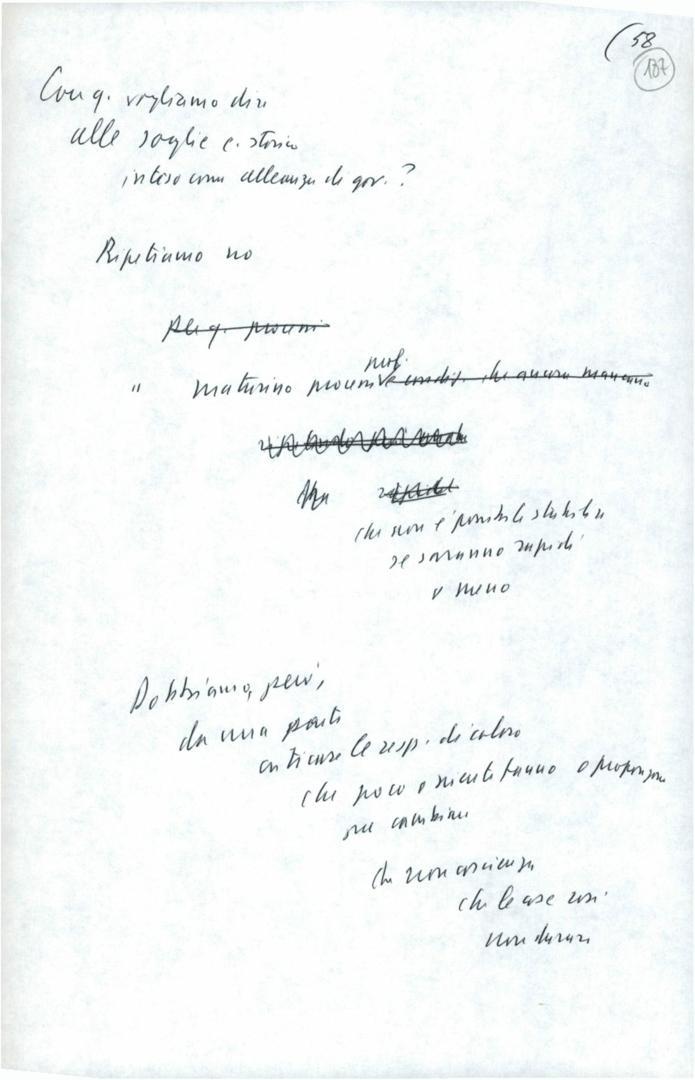 (58
187
Con q. vogliamo dire
alle soglie c. storico
inteso come alleanza di gov. ?
Ripetiamo no
Per q. processi
prof.
" maturino processi e condiz. che ancora mancano
che non è possibile stabilire
se saranno rapidi
o meno
Dobbiamo, però,
da una parte
criticare le resp. di coloro
che poco o niente fanno o propongono
per cambiare
che non
che le cose così
non durare